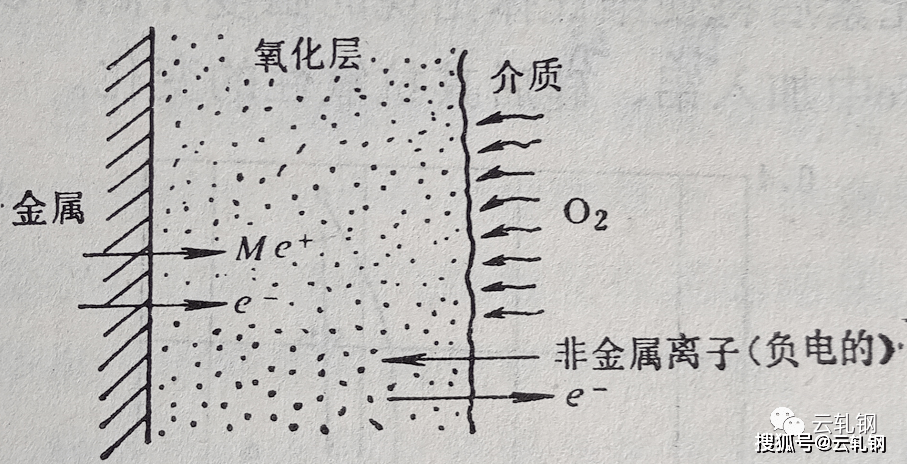 氧化层
介质
金属
O₂
Me⁺
e⁻
非金属离子(负电的)
e⁻
云轧钢
搜狐号@云轧钢